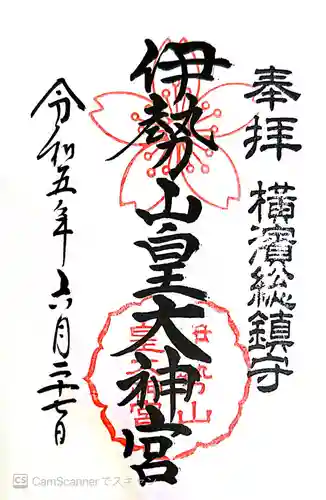 奉拝 横濱総鎮守
伊勢山皇大神宮
令和五年六月二十七日
伊勢山
皇大神宮
CS CamScannerでスキ